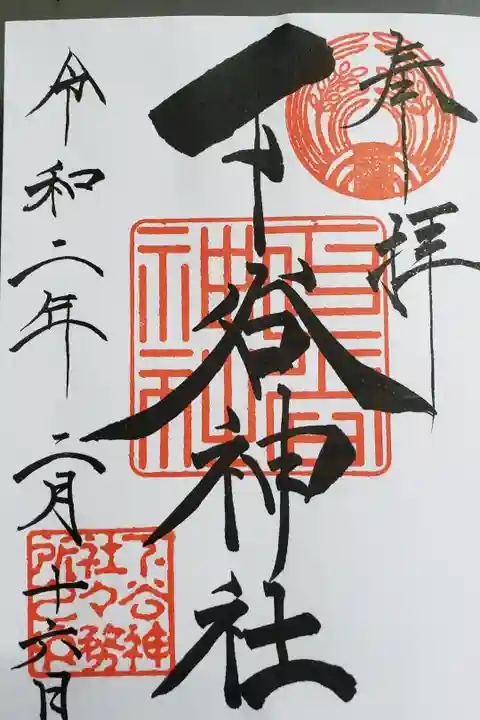 奉拝
下谷神社
令和二年二月十六日
下谷神
社々務
所之印